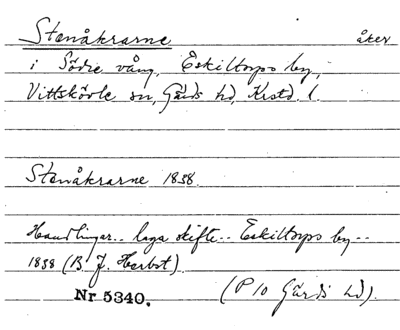 Stenåkrarne åker
i Södre vång, Eskiltorps by,
Vittskövle sn, Gärds hd, Krstd. l.
Stenåkrarne 1838.
Handlingar.. laga skifte.. Eskiltorps by..
1838 (B. J. Herbst).
Nr 5340. (P 10 Gärds hd).